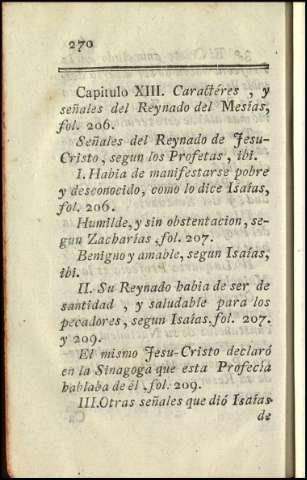 270
Capitulo XIII. Caractéres , y
señales del Reynado del Mesías,
fol. 206.
Señales del Reynado de Jesu-
Cristo , segun los Profetas , ibi.
I. Habia de manifestarse pobre
y desconocido, como lo dice Isaías,
fol. 206.
Humilde, y sin obstentacion, se-
gun Zacharías , fol. 207.
Benigno y amable, segun Isaías,
ibi.
II. Su Reynado habia de ser de
santidad , y saludable para los
pecadores , segun Isaías. fol. 207.
y 209.
El mismo Jesu-Cristo declaró
en la Sinagoga que esta Profecía
hablaba de él . fol. 209.
III. Otras señales que dió Isaías
de